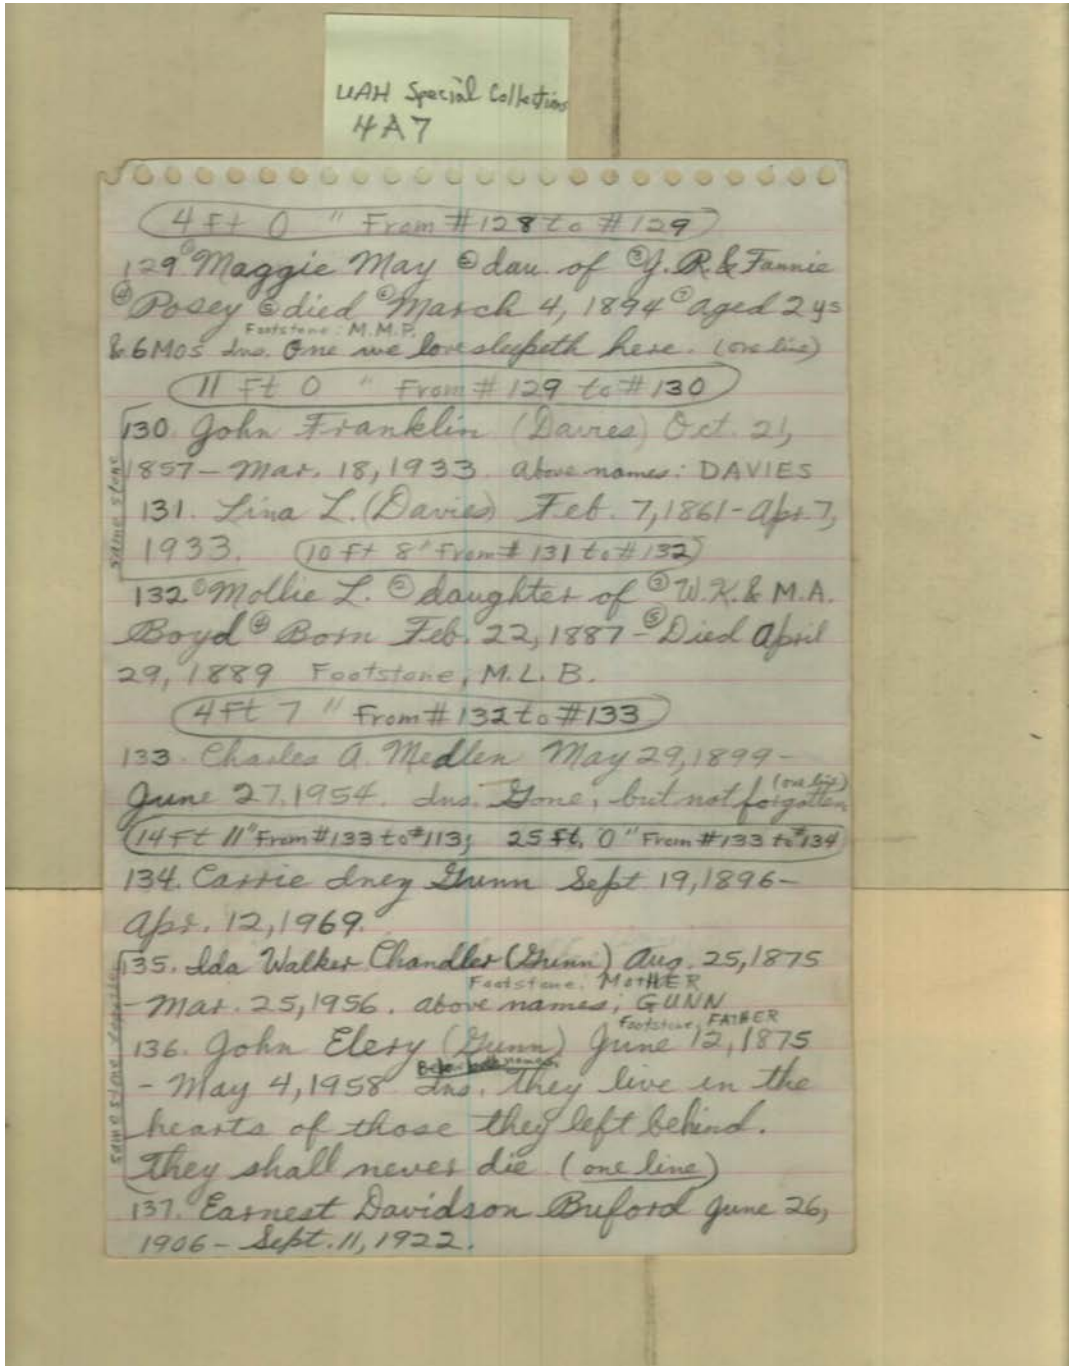 UAH Special Collection
4A7
4 ft 0 " From #128 to #129
129 ① Maggie May ② dau. of ③ J. R. & Fannie
④ Posey ⑤ died ⑥ March 4, 1894 ⑦ aged 2 ys
Footstone: M.M.P.
& 6 Mos Ins. One we love sleepeth here. (one line)
11 Ft 0 " From #129 to #130
130. John Franklin (Davies) Oct. 21,
1857 – Mar. 18, 1933. above names: DAVIES
131. Lina L. (Davies) Feb. 7, 1861 – Apr. 7,
1933. 10 ft 8" From #131 to #132
same stone
132 ① Mollie L. ② daughter of ③ W.K. & M.A.
Boyd ④ Born Feb. 22, 1887 – ⑤ Died April
29, 1889 Footstone, M.L.B.
4 Ft 7 " From #132 to #133
133. Charles A. Medlen May 29, 1899 –
(one line)
June 27, 1954. Ins. Gone, but not forgotten
14 Ft 11" From #133 to #113; 25 ft. 0" From #133 to #134
134. Carrie Iney Gunn Sept 19, 1896 –
Apr. 12, 1969.
135. Ida Walker Chandler (Gunn) Aug. 25, 1875
Footstone: MOTHER
– Mar. 25, 1956. above names; GUNN
Footstone, FATHER
136. John Elery (Gunn) June 12, 1875
Below both names
– May 4, 1958 Ins. They live in the
hearts of those they left behind.
They shall never die (one line)
same stone
137. Earnest Davidson Buford June 26,
1906 – Sept. 11, 1922.